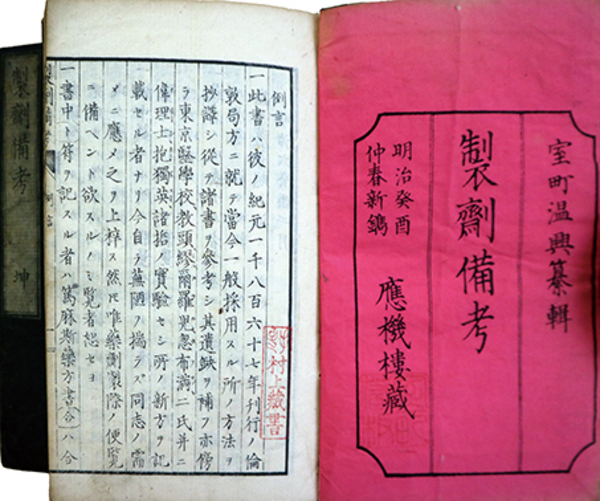 室町温興纂輯
製劑備考
明治癸酉
仲春新鐫
應機樓藏
例言
一此書ハ彼ノ紀元一千八百六十七年刊行ノ倫
敦局方ニ就テ當今一般採用スル所ノ方法ヲ
抄譯シ從テ諸書ヲ參考シ其遺缺ヲ補フ亦傍
ラ東京醫學校教頭繆爾羅兒忽布満二氏并ニ
偉理士抱獨英諸哲ノ實驗セシ所ノ新方ヲ記
載セル者ナリ今自ラ蕪陋ヲ揣ラズ同志ノ需
メニ應メ之ヲ上梓ス然レ𪜈唯藥劑製際ノ便覧
ニ備ヘント欲スルノミ覧者恕セヨ
一書中ト符ヲ記スル者ハ篤麻斯藥方書合ハ合
村上蔵書
製劑備考
例言
製劑備考 坤